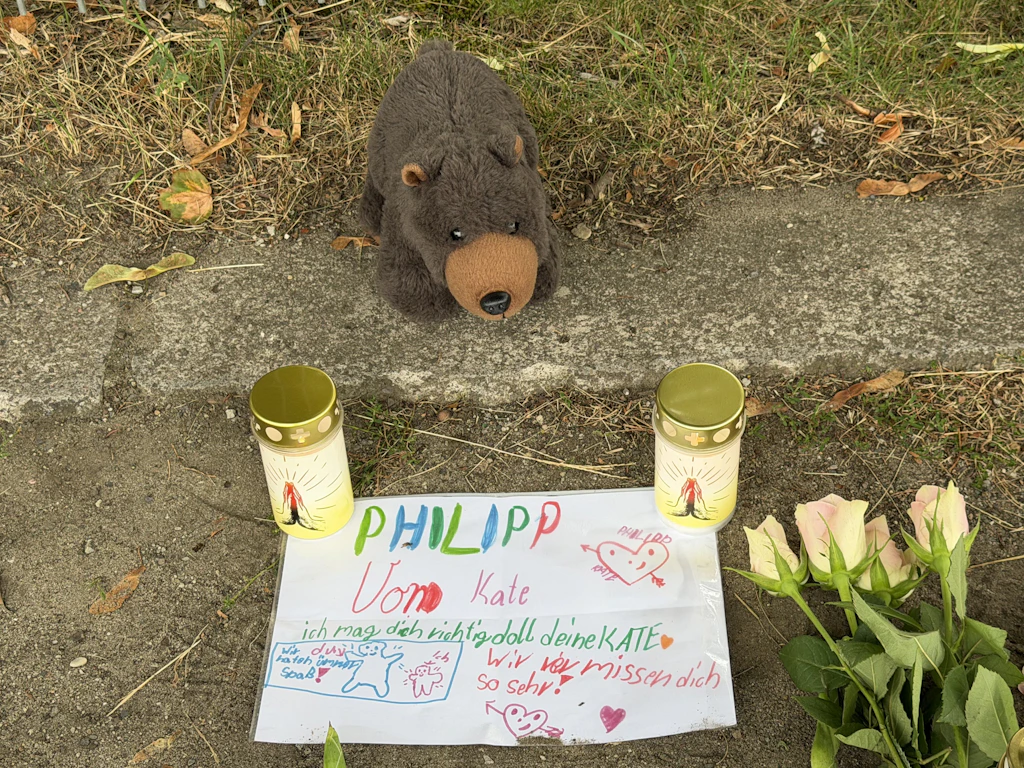 PHILIPP
Von Kate
PHILIPP
KATE
ich mag dich richtig doll deine KATE
wir
hatten immer
Spaß!
du
ich
Wir vermissen dich
so sehr!